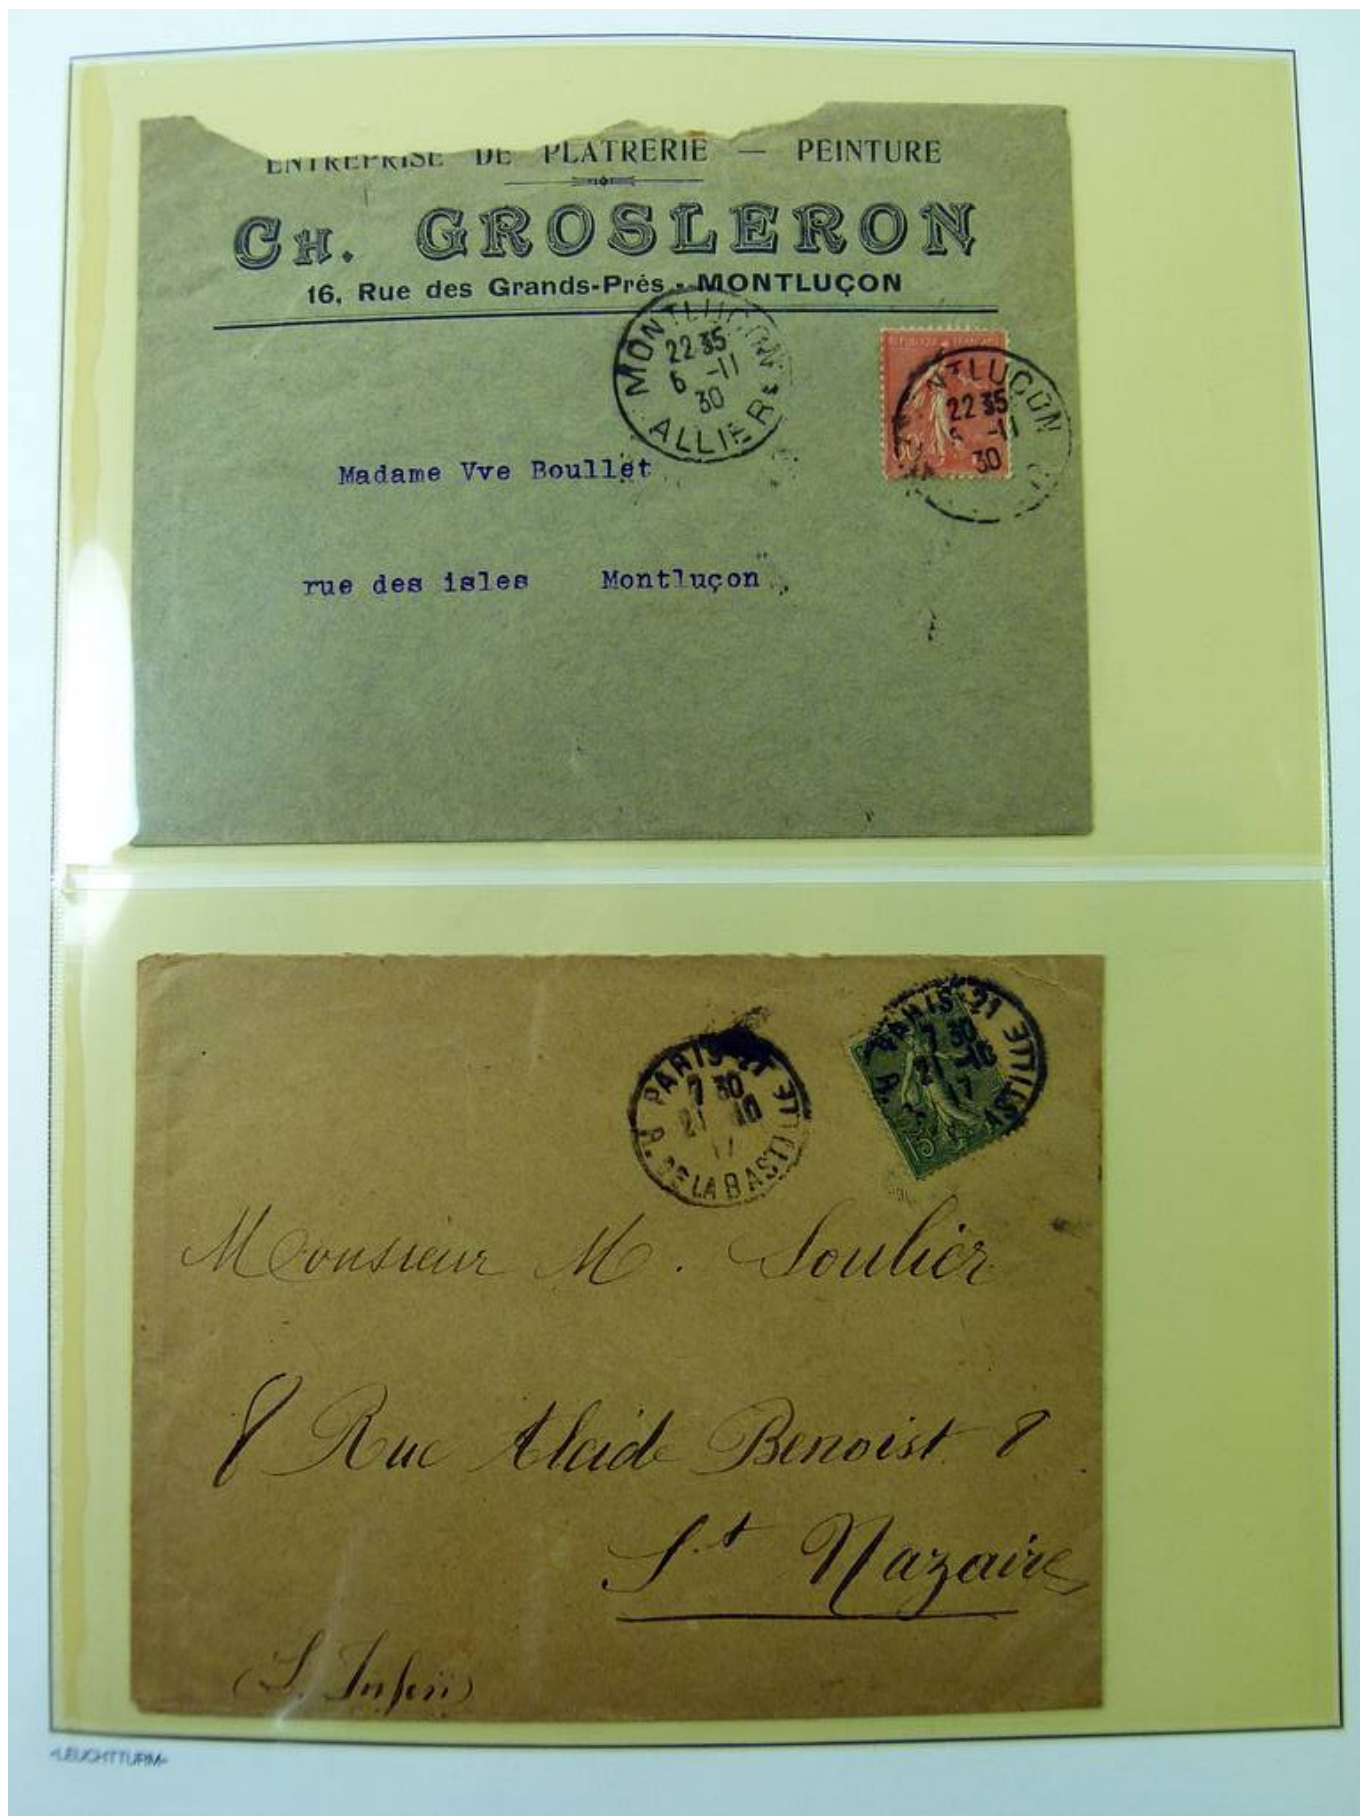 ENTREPRISE DE PLATRERIE — PEINTURE
CH. GROSLERON
16, Rue des Grands-Prés - MONTLUÇON
MONTLUÇON
22 35
6 -11
30
ALLIER
REPUBLIQUE FRANÇAISE
NTLUÇON
22 35
-11
30
Madame Vve Boullet
rue des isles Montluçon
PARIS 21
7 30
21 -10
17
R. BASTILLE
15
PARIS 21
7 30
21 10
17
R. DE LA BASTILLE
Monsieur M. Soulier
8 Rue Alcide Benoist 8
St Nazaire
(L. Inferi)
LEUCHTTURM